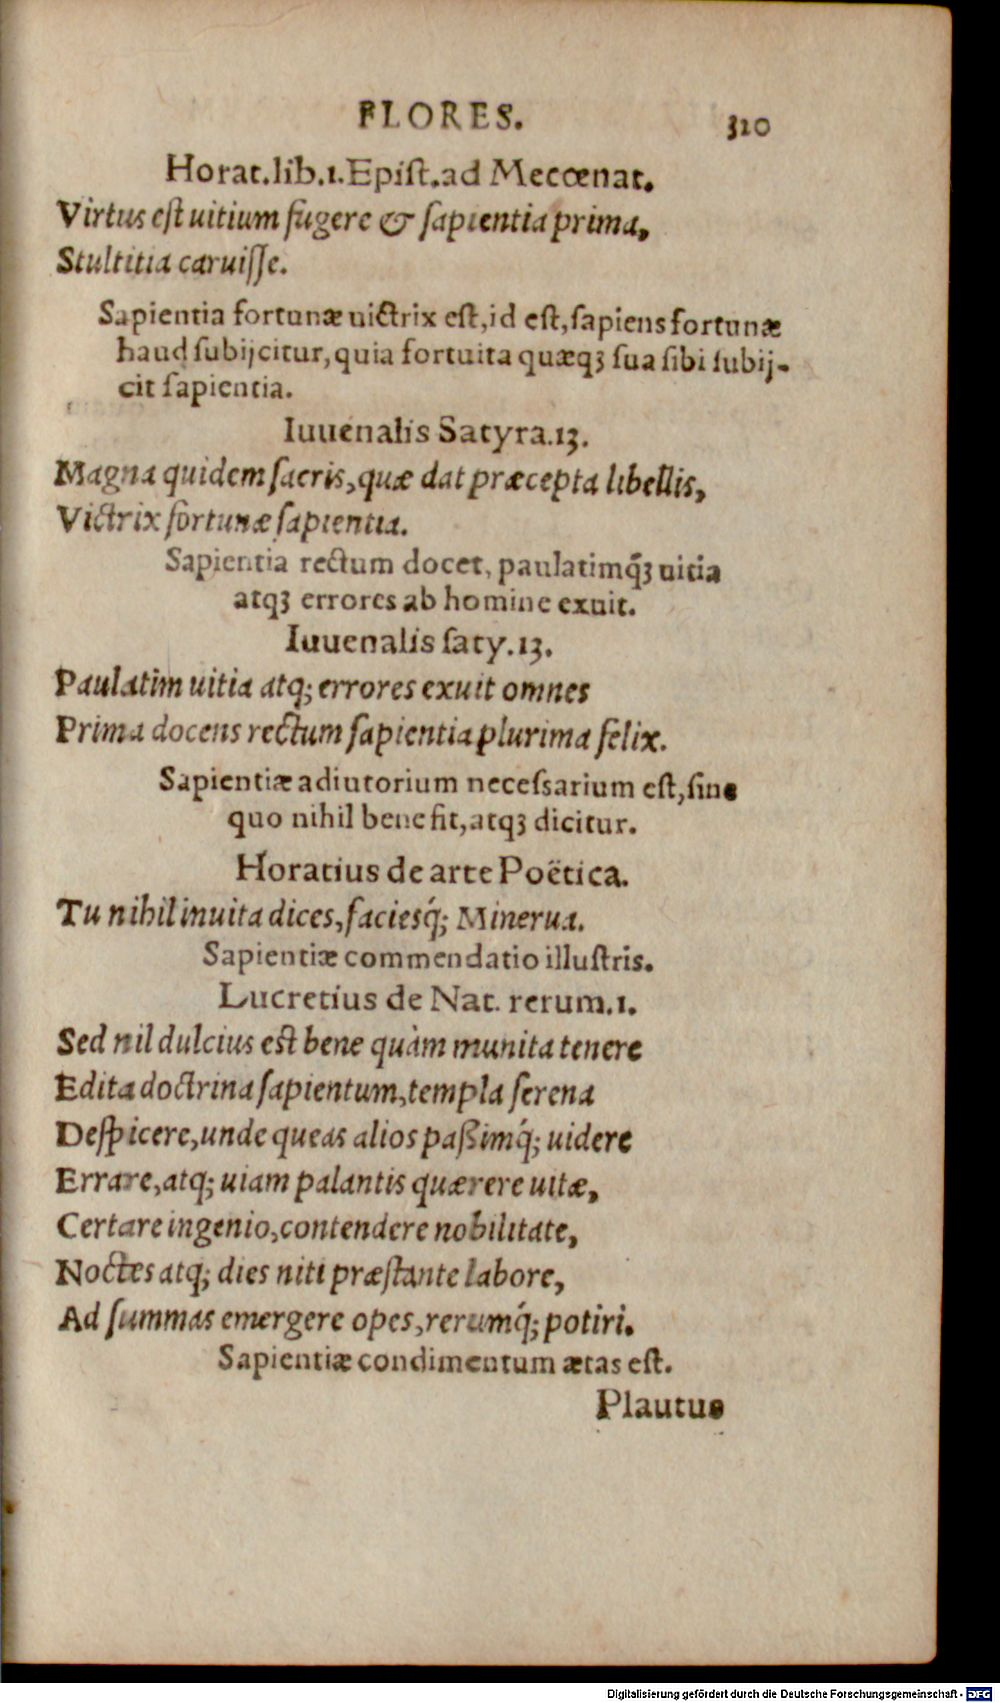 FLORES. 310
Horat.lib.1.Epiſt.ad Mecœnat.
Virtus eſt uitium fugere & ſapientia prima,
Stultitia caruiſſe.
Sapientia fortunæ uictrix eſt,id eſt,ſapiens fortunæ
haud ſubijcitur,quia fortuita quæqꝫ ſua ſibi ſubij-
cit ſapientia.
Iuuenalis Satyra.13.
Magna quidem ſacris,quæ dat præcepta libellis,
Victrix fortunæ ſapientia.
Sapientia rectum docet, paulatimq́ꝫ uitia
atqꝫ errores ab homine exuit.
Iuuenalis ſaty.13.
Paulatim uitia atq; errores exuit omnes
Prima docens rectum ſapientia plurima felix.
Sapientiæ adiutorium neceſsarium eſt,ſine
quo nihil bene fit,atqꝫ dicitur.
Horatius de arte Poëtica.
Tu nihil inuita dices,facieſq́; Minerua.
Sapientiæ commendatio illuſtris.
Lucretius de Nat. rerum.1.
Sed nil dulcius eſt bene quàm munita tenere
Edita doctrina ſapientum,templa ſerena
Deſpicere,unde queas alios paßimq́; uidere
Errare,atq; uiam palantis quærere uitæ,
Certare ingenio,contendere nobilitate,
Noctes atq; dies niti præſtante labore,
Ad ſummas emergere opes,rerumq́; potiri.
Sapientiæ condimentum ætas eſt.
Plautus
Digitalisierung gefördert durch die Deutsche Forschungsgemeinschaft - DFG